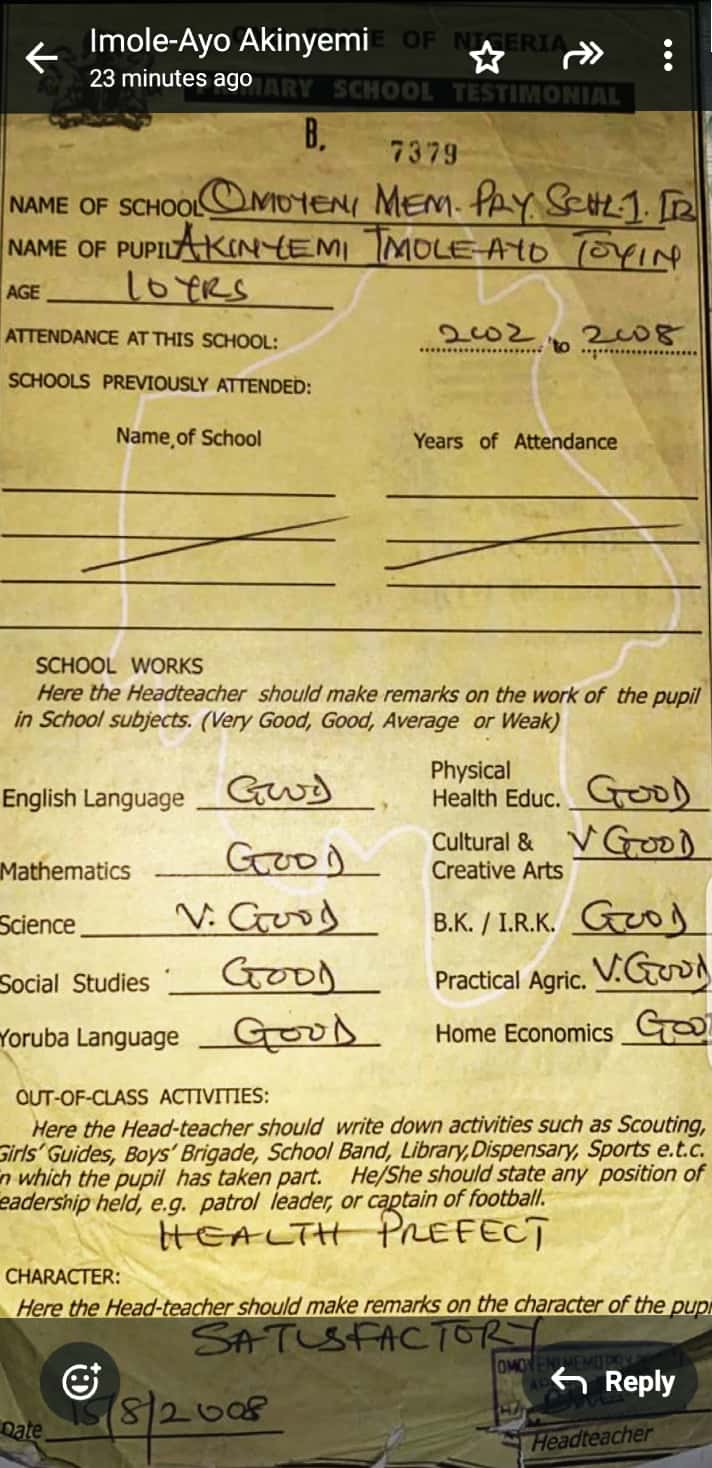 Imole-Ayo Akinyemi
23 minutes ago
OF NIGERIA
PRIMARY SCHOOL TESTIMONIAL
B. 7379
NAME OF SCHOOL OMOYENI MEM. PRY. SCHL. 1. IB
NAME OF PUPIL AKINYEMI IMOLE-AYO TOYIN
AGE 10 YRS
ATTENDANCE AT THIS SCHOOL: 2002 to 2008
SCHOOLS PREVIOUSLY ATTENDED:
Name of School Years of Attendance
SCHOOL WORKS
Here the Headteacher should make remarks on the work of the pupil
in School subjects. (Very Good, Good, Average or Weak)
English Language GOOD Physical Health Educ. GOOD
Mathematics GOOD Cultural & Creative Arts V GOOD
Science V. GOOD B.K. / I.R.K. GOOD
Social Studies GOOD Practical Agric. V. GOOD
Yoruba Language GOOD Home Economics GOO
OUT-OF-CLASS ACTIVITIES:
Here the Head-teacher should write down activities such as Scouting,
Girls' Guides, Boys' Brigade, School Band, Library, Dispensary, Sports e.t.c.
in which the pupil has taken part. He/She should state any position of
eadership held, e.g. patrol leader, or captain of football.
HEALTH PREFECT
CHARACTER:
Here the Head-teacher should make remarks on the character of the pupi
SATISFACTORY
Reply
Date 15/8/2008
Headteacher